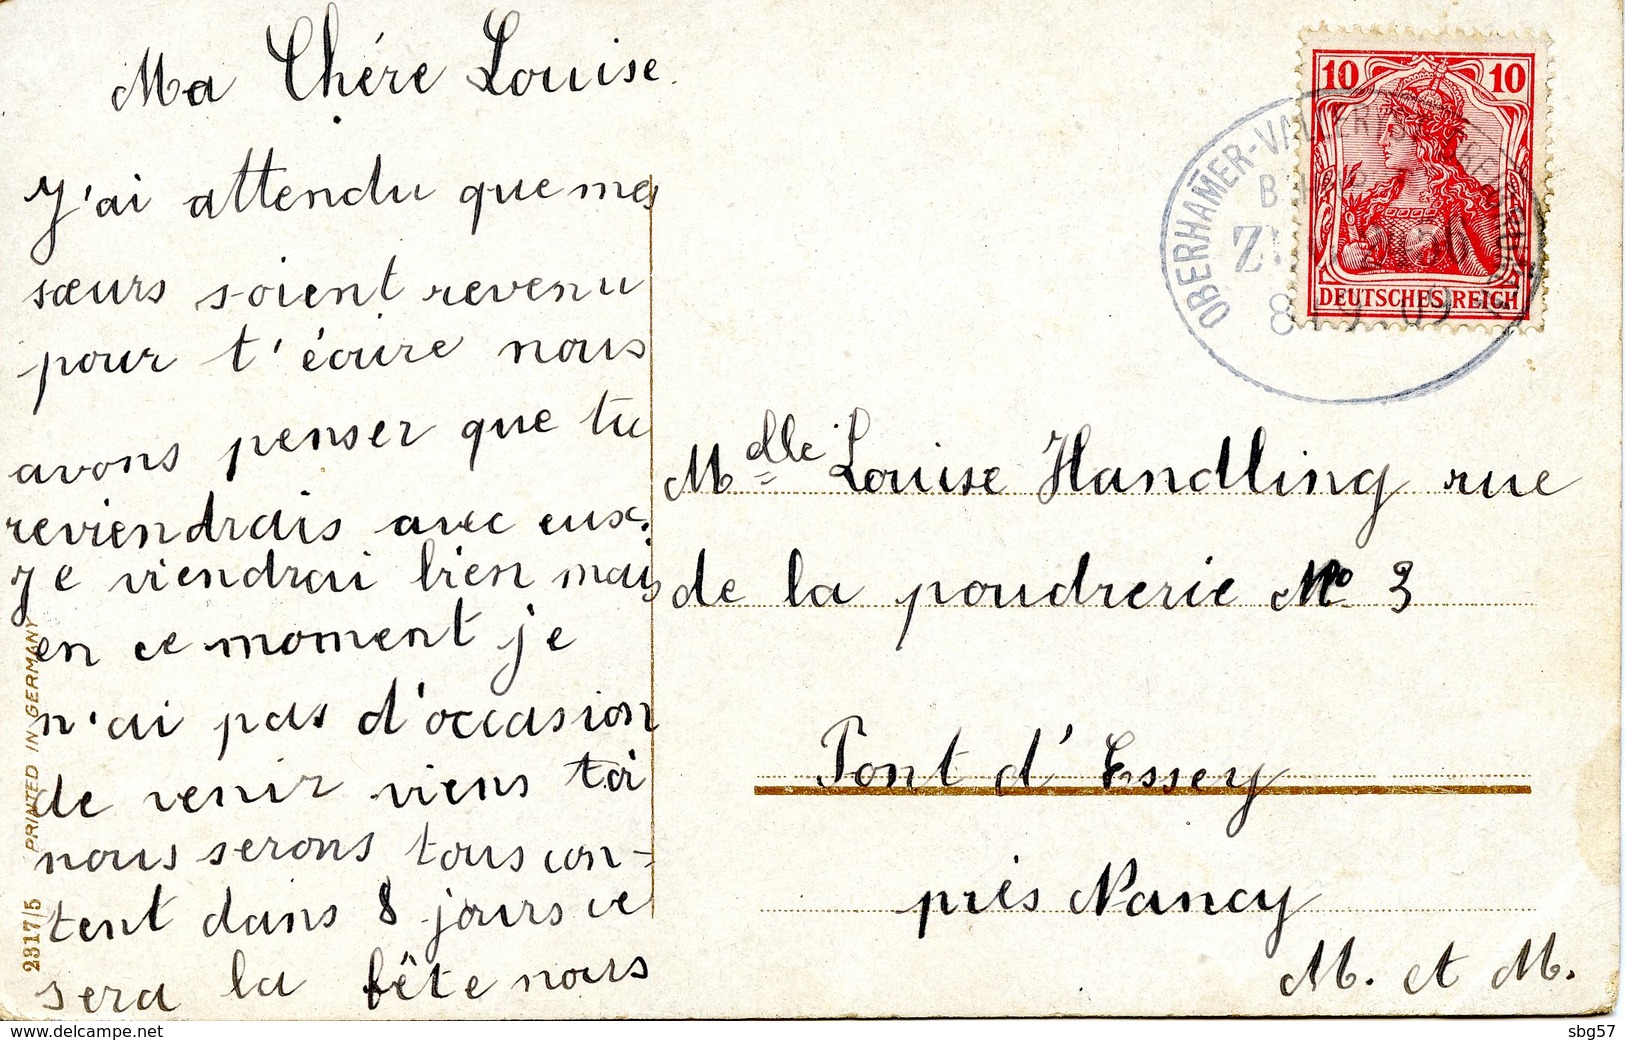 Ma Chére Louise.
J'ai attendu que mes
sœurs soient revenu
pour t'écrire nous
avons penser que tu
reviendrais avec eux.
Je viendrai bien mais
en ce moment je
n'ai pas d'occasion
de venir viens toi
nous serons tous con-
tent dans 8 jours ce
sera la fête nous
Mdlle Louise Handling rue
de la poudrerie No 3
Pont d'Essey
prés Nancy
M. et M.
10 10
DEUTSCHES REICH
OBERHAMER-VALLER
8 9 09
2317/5 PRINTED IN GERMANY
www.delcampe.net
sbg57